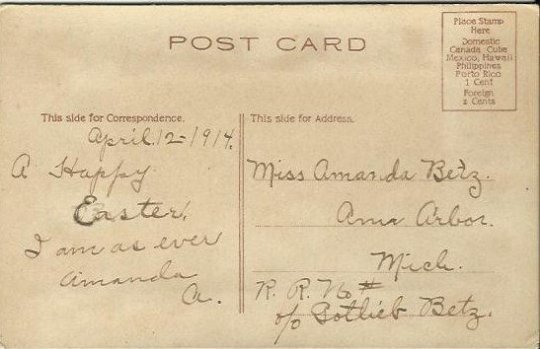 POST CARD
Place Stamp
Here
Domestic
Canada, Cuba
Mexico, Hawaii
Philippines
Porto Rico
1 Cent
Foreign
2 Cents
This side for Correspondence.
April.12-1914.
A Happy
Easter,
I am as ever
Amanda
A.
This side for Address.
Miss Amanda Betz.
Ann Arbor.
Mich.
R. R. No #
c/o Gotlieb Betz.